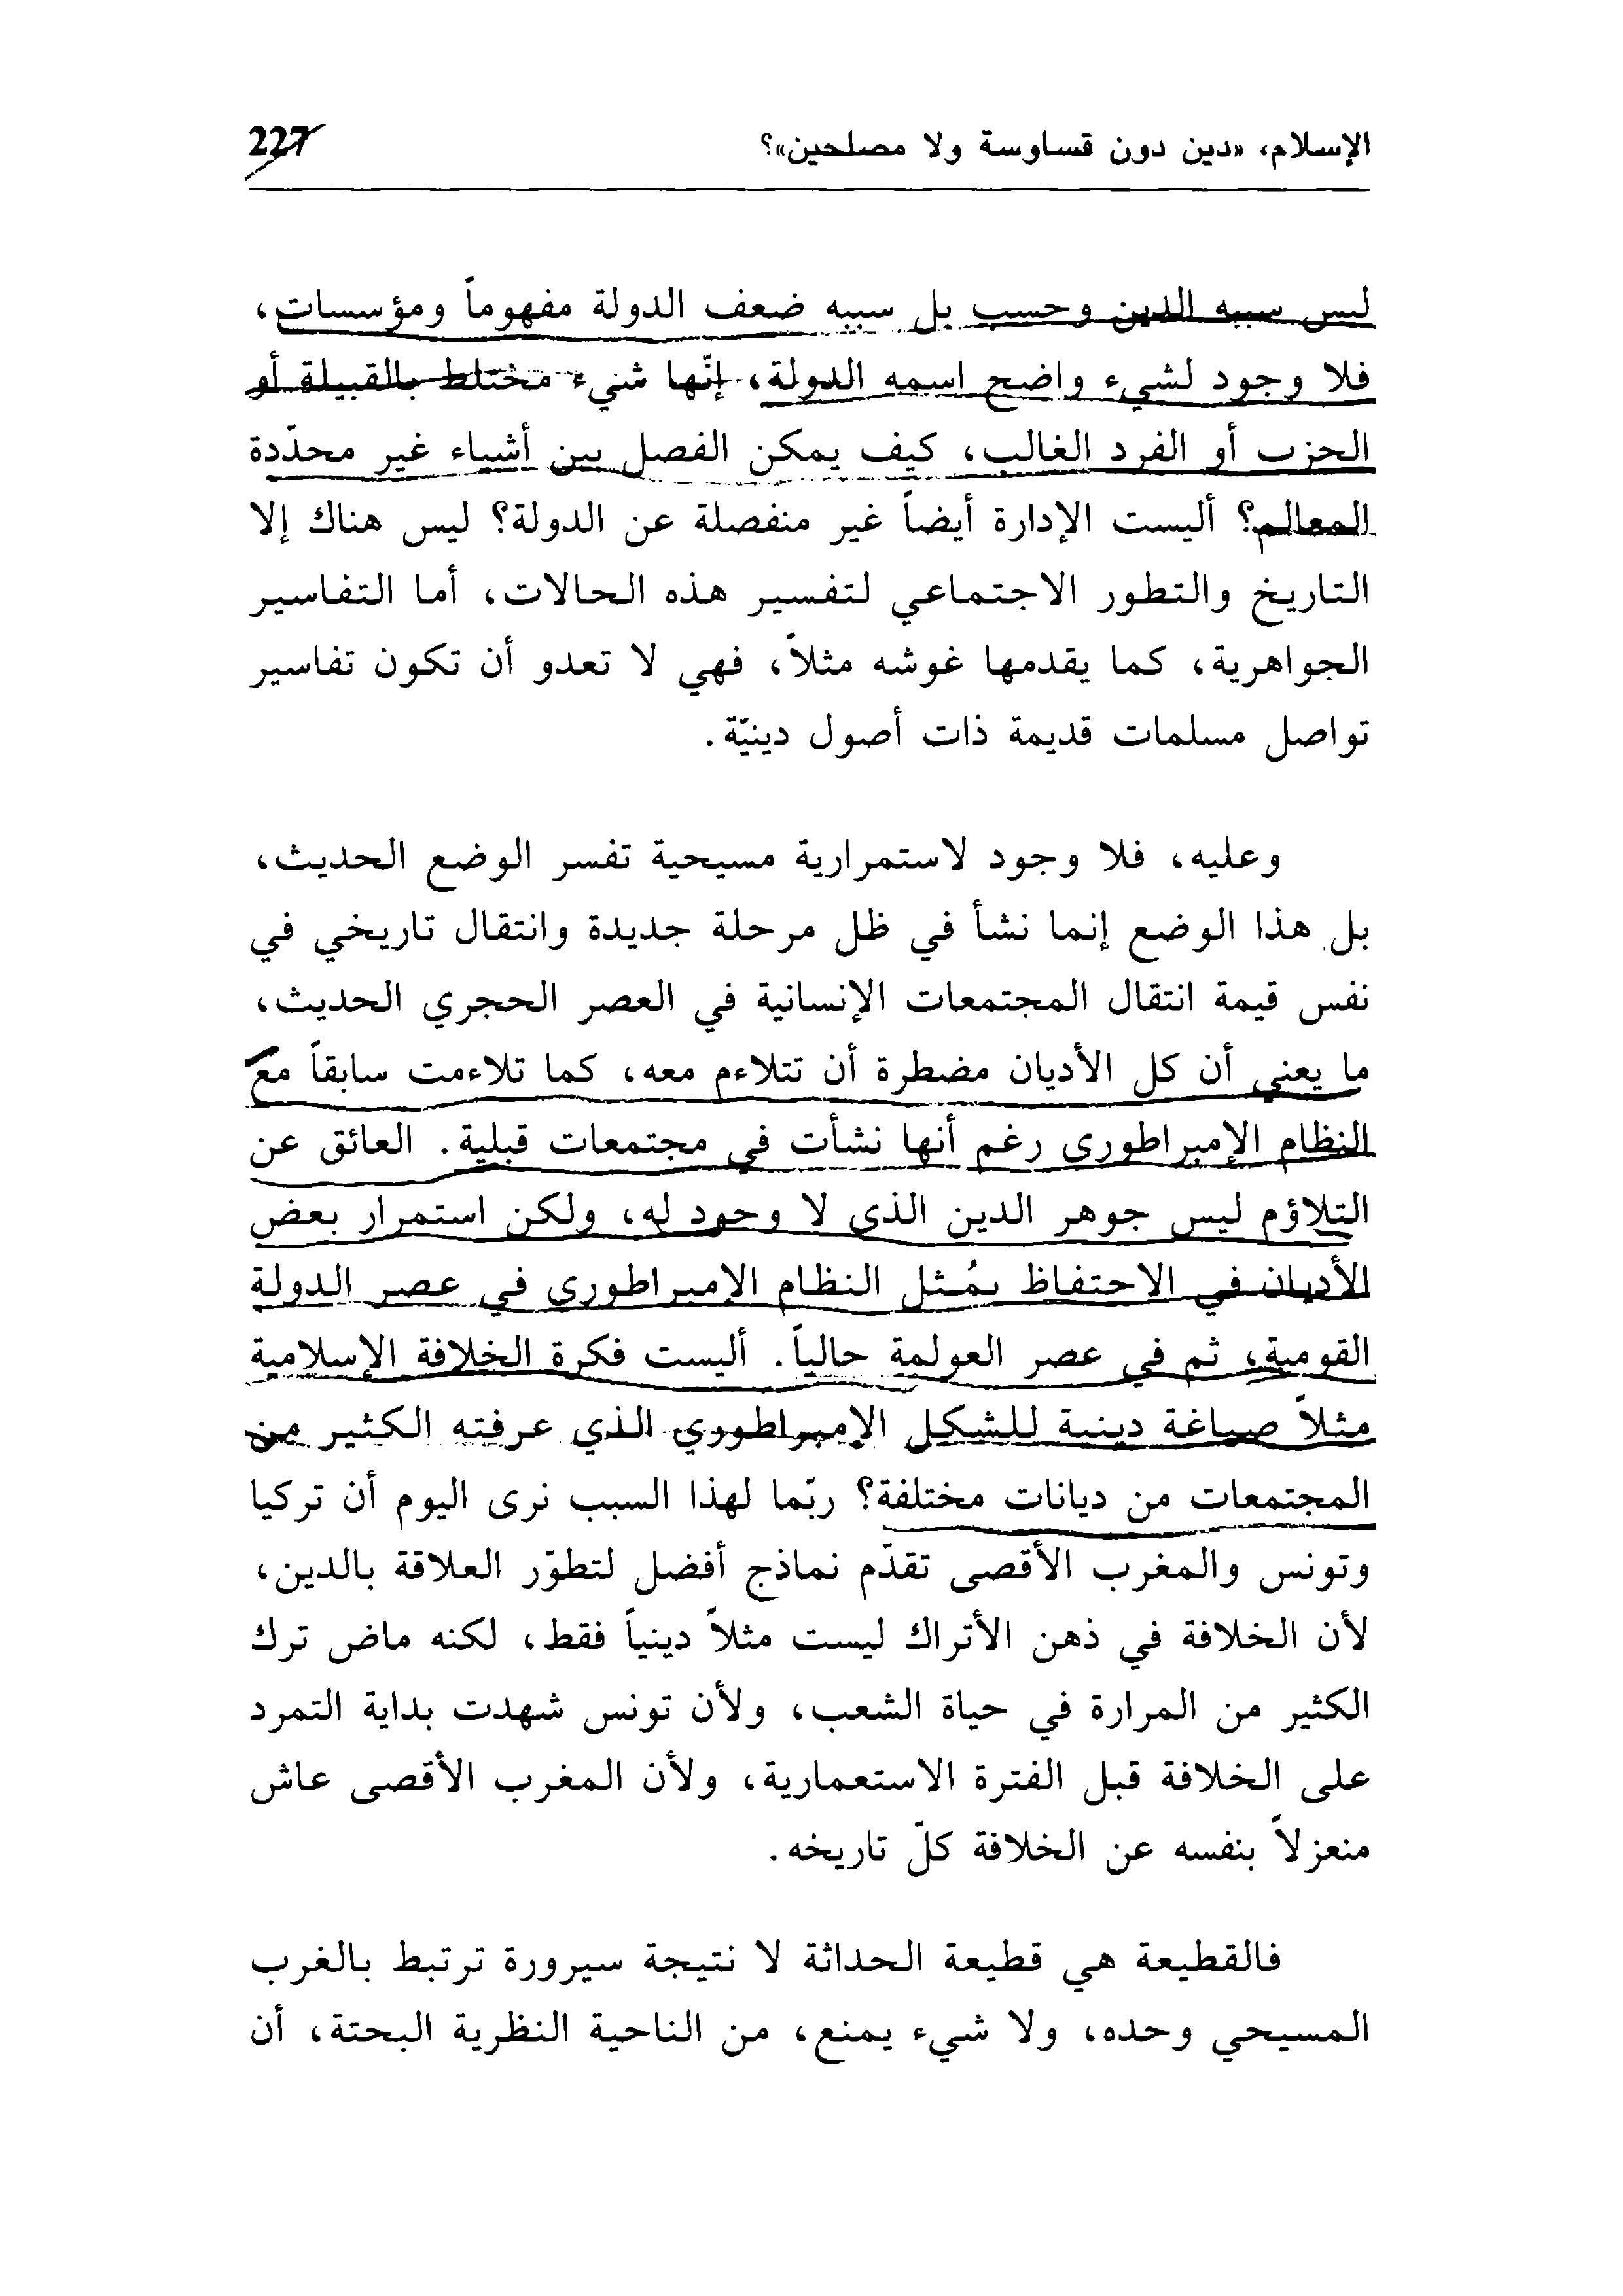 الإسلام، «دين دون قساوسة ولا مصلحين»؟ 227
ليس سببه الدين وحسب بل سببه ضعف الدولة مفهوماً ومؤسسات،
فلا وجود لشيء واضح اسمه الدولة، إنّها شيء مختلط بالقبيلة أو
الحزب أو الفرد الغالب، كيف يمكن الفصل بين أشياء غير محدّدة
المعالم؟ أليست الإدارة أيضاً غير منفصلة عن الدولة؟ ليس هناك إلا
التاريخ والتطور الاجتماعي لتفسير هذه الحالات، أما التفاسير
الجواهرية، كما يقدمها غوشه مثلاً، فهي لا تعدو أن تكون تفاسير
تواصل مسلمات قديمة ذات أصول دينيّة.
وعليه، فلا وجود لاستمرارية مسيحية تفسر الوضع الحديث،
بل هذا الوضع إنما نشأ في ظل مرحلة جديدة وانتقال تاريخي في
نفس قيمة انتقال المجتمعات الإنسانية في العصر الحجري الحديث،
ما يعني أن كل الأديان مضطرة أن تتلاءم معه، كما تلاءمت سابقاً مع
النظام الإمبراطوري رغم أنها نشأت في مجتمعات قبلية. العائق عن
التلاؤم ليس جوهر الدين الذي لا وجود له، ولكن استمرار بعض
الأديان في الاحتفاظ بمُثل النظام الإمبراطوري في عصر الدولة
القومية، ثم في عصر العولمة حالياً. أليست فكرة الخلافة الإسلامية
مثلاً صياغة دينية للشكل الإمبراطوري الذي عرفته الكثير من
المجتمعات من ديانات مختلفة؟ ربّما لهذا السبب نرى اليوم أن تركيا
وتونس والمغرب الأقصى تقدّم نماذج أفضل لتطوّر العلاقة بالدين،
لأن الخلافة في ذهن الأتراك ليست مثلاً دينياً فقط، لكنه ماض ترك
الكثير من المرارة في حياة الشعب، ولأن تونس شهدت بداية التمرد
على الخلافة قبل الفترة الاستعمارية، ولأن المغرب الأقصى عاش
منعزلاً بنفسه عن الخلافة كلّ تاريخه.
فالقطيعة هي قطيعة الحداثة لا نتيجة سيرورة ترتبط بالغرب
المسيحي وحده، ولا شيء يمنع، من الناحية النظرية البحتة، أن